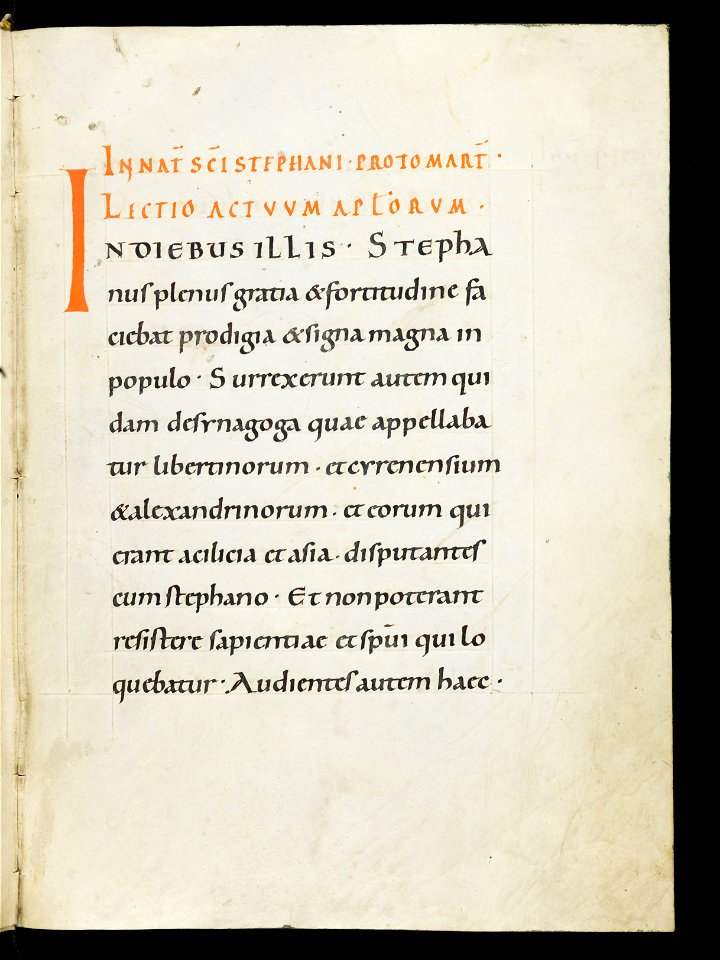 IN NAT̄ SC̄I STEPHANI · PROTOMART̄ ·
LECTIO ACTUUM APL̄ORUM ·
IN DIEBUS ILLIS · Stepha
nus plenus gratia & fortitudine fa
ciebat prodigia & signa magna in
populo · Surrexerunt autem qui
dam desynagoga quae appellaba
tur libertinorum · et cyrenensium
& alexandrinorum · et eorum qui
erant acilicia et asia · disputantes
cum stephano · Et non poterant
resistere sapientiae et sp̄ui qui lo
quebatur · Audientes autem haec ·